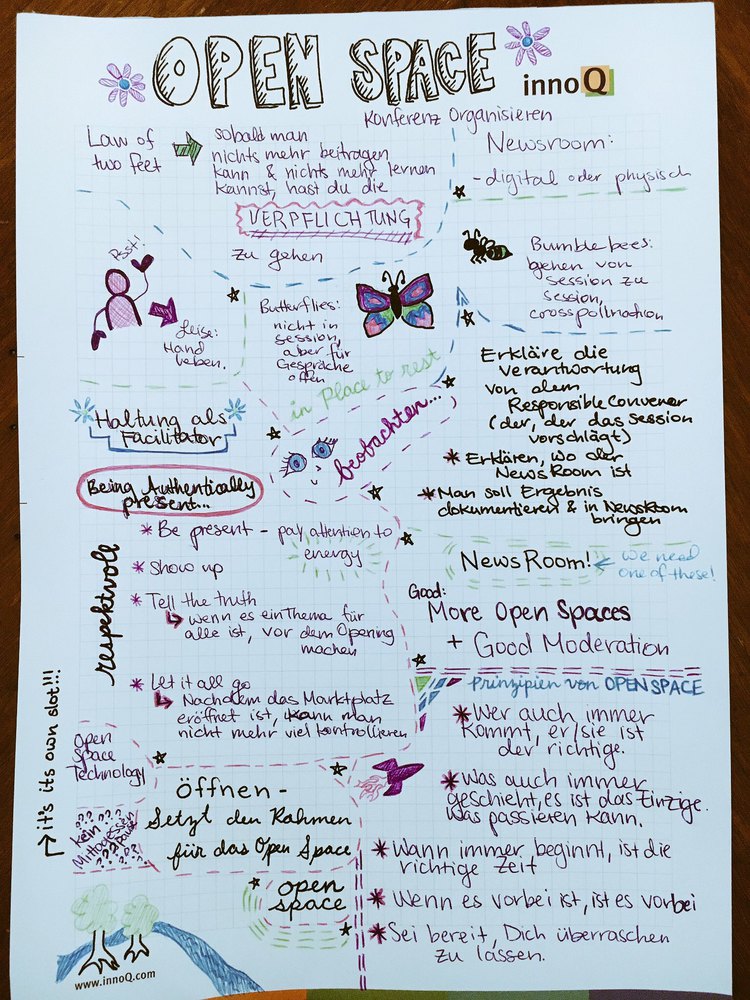 OPEN SPACE
innoQ
Konferenz Organisieren
Law of
two feet
sobald man
nichts mehr beitragen
kann & nichts mehr lernen
kannst, hast du die
VERPFLICHTUNG
zu gehen
Newsroom:
- digital oder physisch
Psst!
Leise:
Hand
heben.
Butterflies:
nicht in
session,
aber für
Gespräche
offen
in Place to rest
Bumblebees:
gehen von
session zu
session,
crosspollnation
Haltung als
Facilitator
beobachten...
Erkläre die
Verantwortung
von dem
Responsible Convenor
(der, der das Session
vorschlägt)
* Erklären, wo der
NewsRoom ist
* Man soll Ergebnis
dokumentieren & in NewsRoom
bringen
Being Authentically
present...
respektvoll
* Be present - pay attention to
energy
* Show up
* Tell the truth
wenn es ein Thema für
alle ist, vor dem Opening
machen
* Let it all go
Nachdem das Marktplatz
eröffnet ist, kann man
nicht mehr viel kontrollieren
NewsRoom!
we need
one of these!
Good:
More Open Spaces
+ Good Moderation
Prinzipien von OPEN SPACE
* Wer auch immer
kommt, er/sie ist
der richtige.
* Was auch immer
geschieht, es ist das Einzige.
Was passieren kann.
* Wann immer beginnt, ist die
richtige Zeit
* Wenn es vorbei ist, ist es vorbei
* Sei bereit, Dich überraschen
zu lassen.
it's its own slot!!!
Open
Space
Technology
??? ???
kein
Mittagessen
Pause
???
öffnen -
Setzt den Rahmen
für das Open Space
open
space
www.innoQ.com